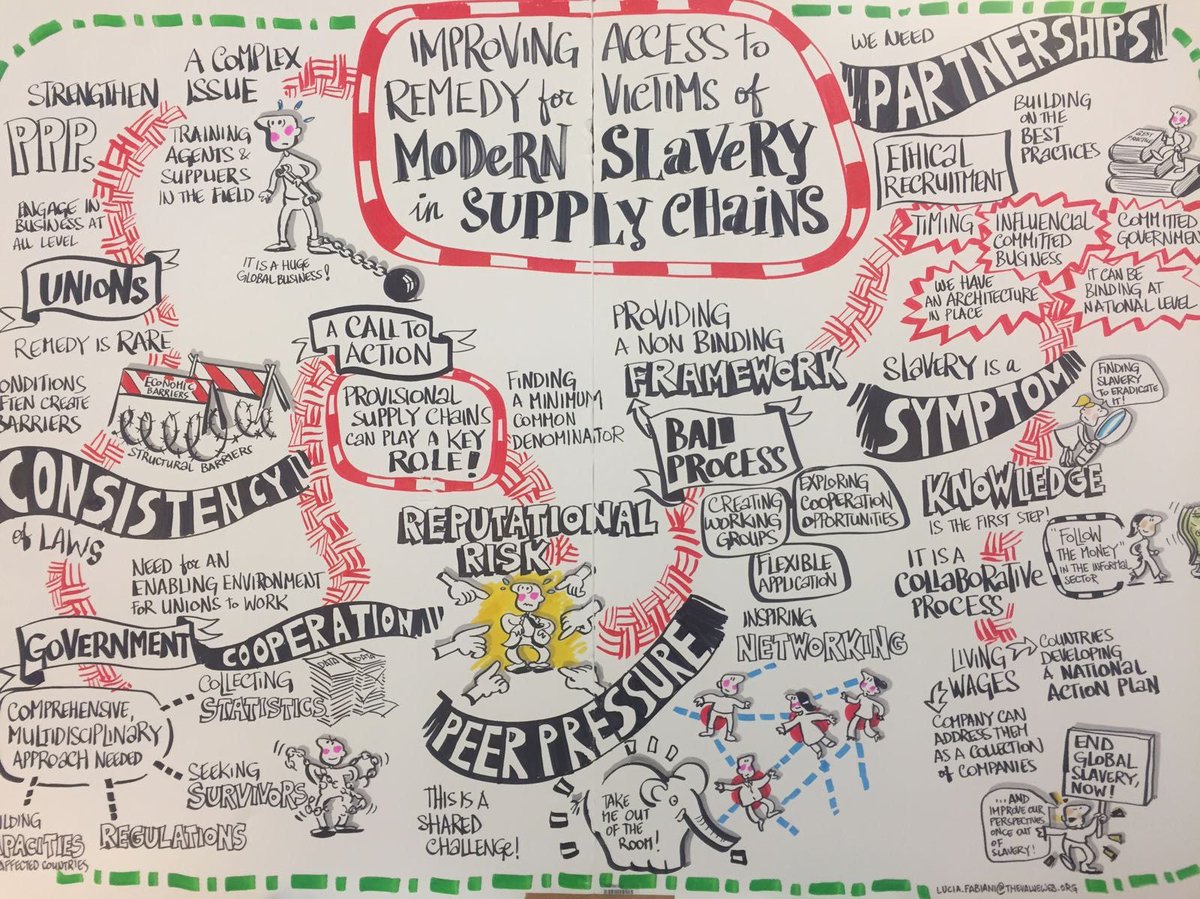 IMPROVING ACCESS to
REMEDY for VICTIMS of
MODERN SLAVERY
in SUPPLY CHAINS
A COMPLEX
ISSUE
STRENGTHEN
PPPs
TRAINING
AGENTS &
SUPPLIERS
IN THE FIELD
ENGAGE IN
BUSINESS AT
ALL LEVEL
IT IS A HUGE
GLOBAL BUSINESS!
UNIONS
REMEDY IS RARE
ECONOMIC
BARRIERS
CONDITIONS
OFTEN CREATE
BARRIERS
STRUCTURAL BARRIERS
CONSISTENCY
of LAWS
NEED for AN
ENABLING ENVIRONMENT
FOR UNIONS to WORK
GOVERNMENT
COOPERATION
COMPREHENSIVE,
MULTIDISCIPLINARY
APPROACH NEEDED
COLLECTING
STATISTICS
DATA DATA
SEEKING
SURVIVORS
REGULATIONS
BUILDING
CAPACITIES
AFFECTED COUNTRIES
A CALL TO
ACTION
PROVISIONAL
SUPPLY CHAINS
CAN PLAY A KEY
ROLE!
FINDING
A MINIMUM
COMMON
DENOMINATOR
REPUTATIONAL
RISK
PEER PRESSURE
THIS IS A
SHARED
CHALLENGE!
TAKE
ME OUT
OF THE
ROOM!
PROVIDING
A NON BINDING
FRAMEWORK
BALI
PROCESS
CREATING
WORKING
GROUPS
EXPLORING
COOPERATION
OPPORTUNITIES
FLEXIBLE
APPLICATION
INSPIRING
NETWORKING
WE NEED
PARTNERSHIPS
BUILDING
ON THE
BEST
PRACTICES
BEST
PRACTICES
ETHICAL
RECRUITMENT
TIMING
INFLUENCIAL
COMMITTED
BUSINESS
COMMITTED
GOVERNMENT
WE HAVE
AN ARCHITECTURE
IN PLACE
IT CAN BE
BINDING AT
NATIONAL LEVEL
SLAVERY IS A
SYMPTOM
FINDING
SLAVERY
TO ERADICATE
IT!
KNOWLEDGE
IS THE FIRST STEP!
"FOLLOW
THE MONEY"
IN THE INFORMAL
SECTOR
IT IS A
COLLABORATIVE
PROCESS
LIVING
WAGES
COMPANY CAN
ADDRESS THEM
AS A COLLECTION
of COMPANIES
COUNTRIES
DEVELOPING
A NATIONAL
ACTION PLAN
END
GLOBAL
SLAVERY,
NOW!
...AND
IMPROVE OUR
PERSPECTIVES
ONCE OUT
OF
SLAVERY!
LUCIA.FABIANI@THEVALUEWEB.ORG